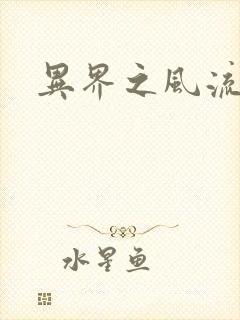 異界之風流
水星鱼